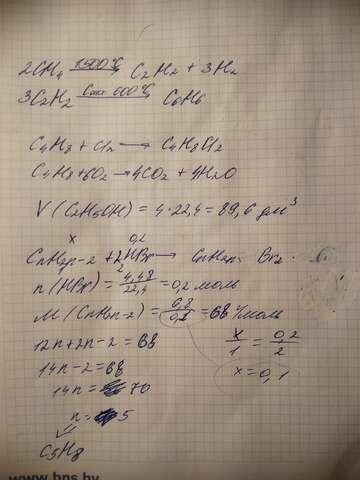 2CH₄ 1500°C → C₂H₂ + 3H₂
3C₂H₂ Cакт 600°C → C₆H₆
C₄H₈ + Cl₂ → C₄H₈Cl₂
C₄H₈ + 6O₂ → 4CO₂ + 4H₂O
V (C₂H₅OH) = 4·22,4 = 89,6 дм³
x 0,2
CnH2n-2 + 2HBr → CnH2n Br₂
2
n (HBr) = 4,48/22,4 = 0,2 моль
M (CnH2n-2) = /0,1 = 68 г/моль
12n + 2n - 2 = 68 x/1 = 0,2/2
14n - 2 = 68 x = 0,1
14n = 70
n = 5
C₅H₈
www.bps.by